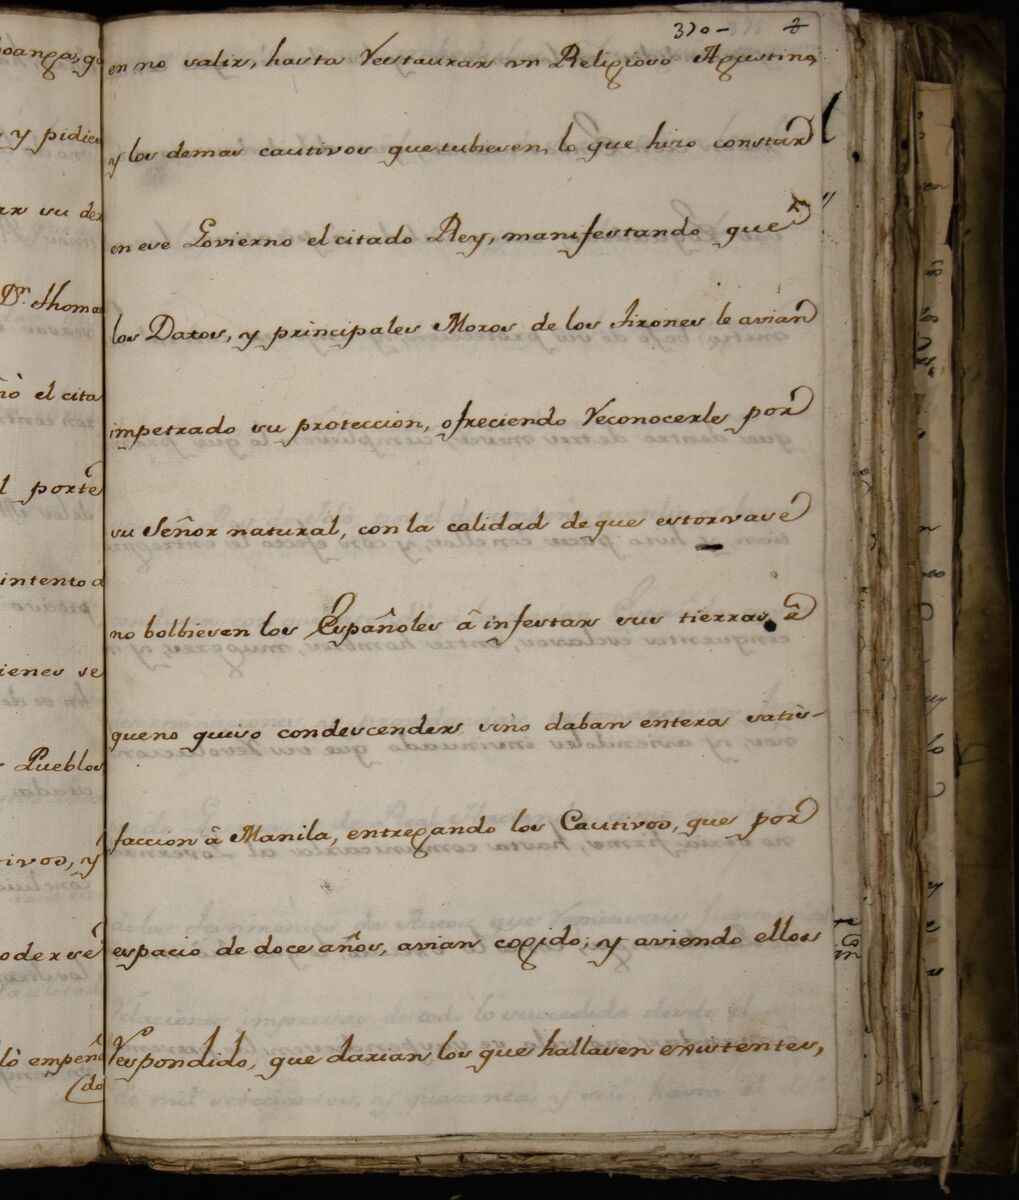 370- 2
en no salir, hasta restaurar un Religioso Agustino,
y los demas cautivos que tubiesen, lo que hizo constar
en ese Govierno el citado Rey, manifestando que
los Datos, y principales Moros de los Tirones le avian
impetrado su proteccion, ofreciendo reconocerle por
su Señor natural, con la calidad de que estorvase
no bolbiesen los Españoles â infestar sus tierras, â
que no quiso condescender, sino daban entera satis-
faccion â Manila, entregando los Cautivos, que por
espacio de doce años, avian cogido; y aviendo ellos
respondido, que darian los que hallasen existentes,
y pidie
su de
Dn. Thomas
el cita
porte
intento a
ienes se
Pueblos
tivos, y
oderse
lo empeña
(do